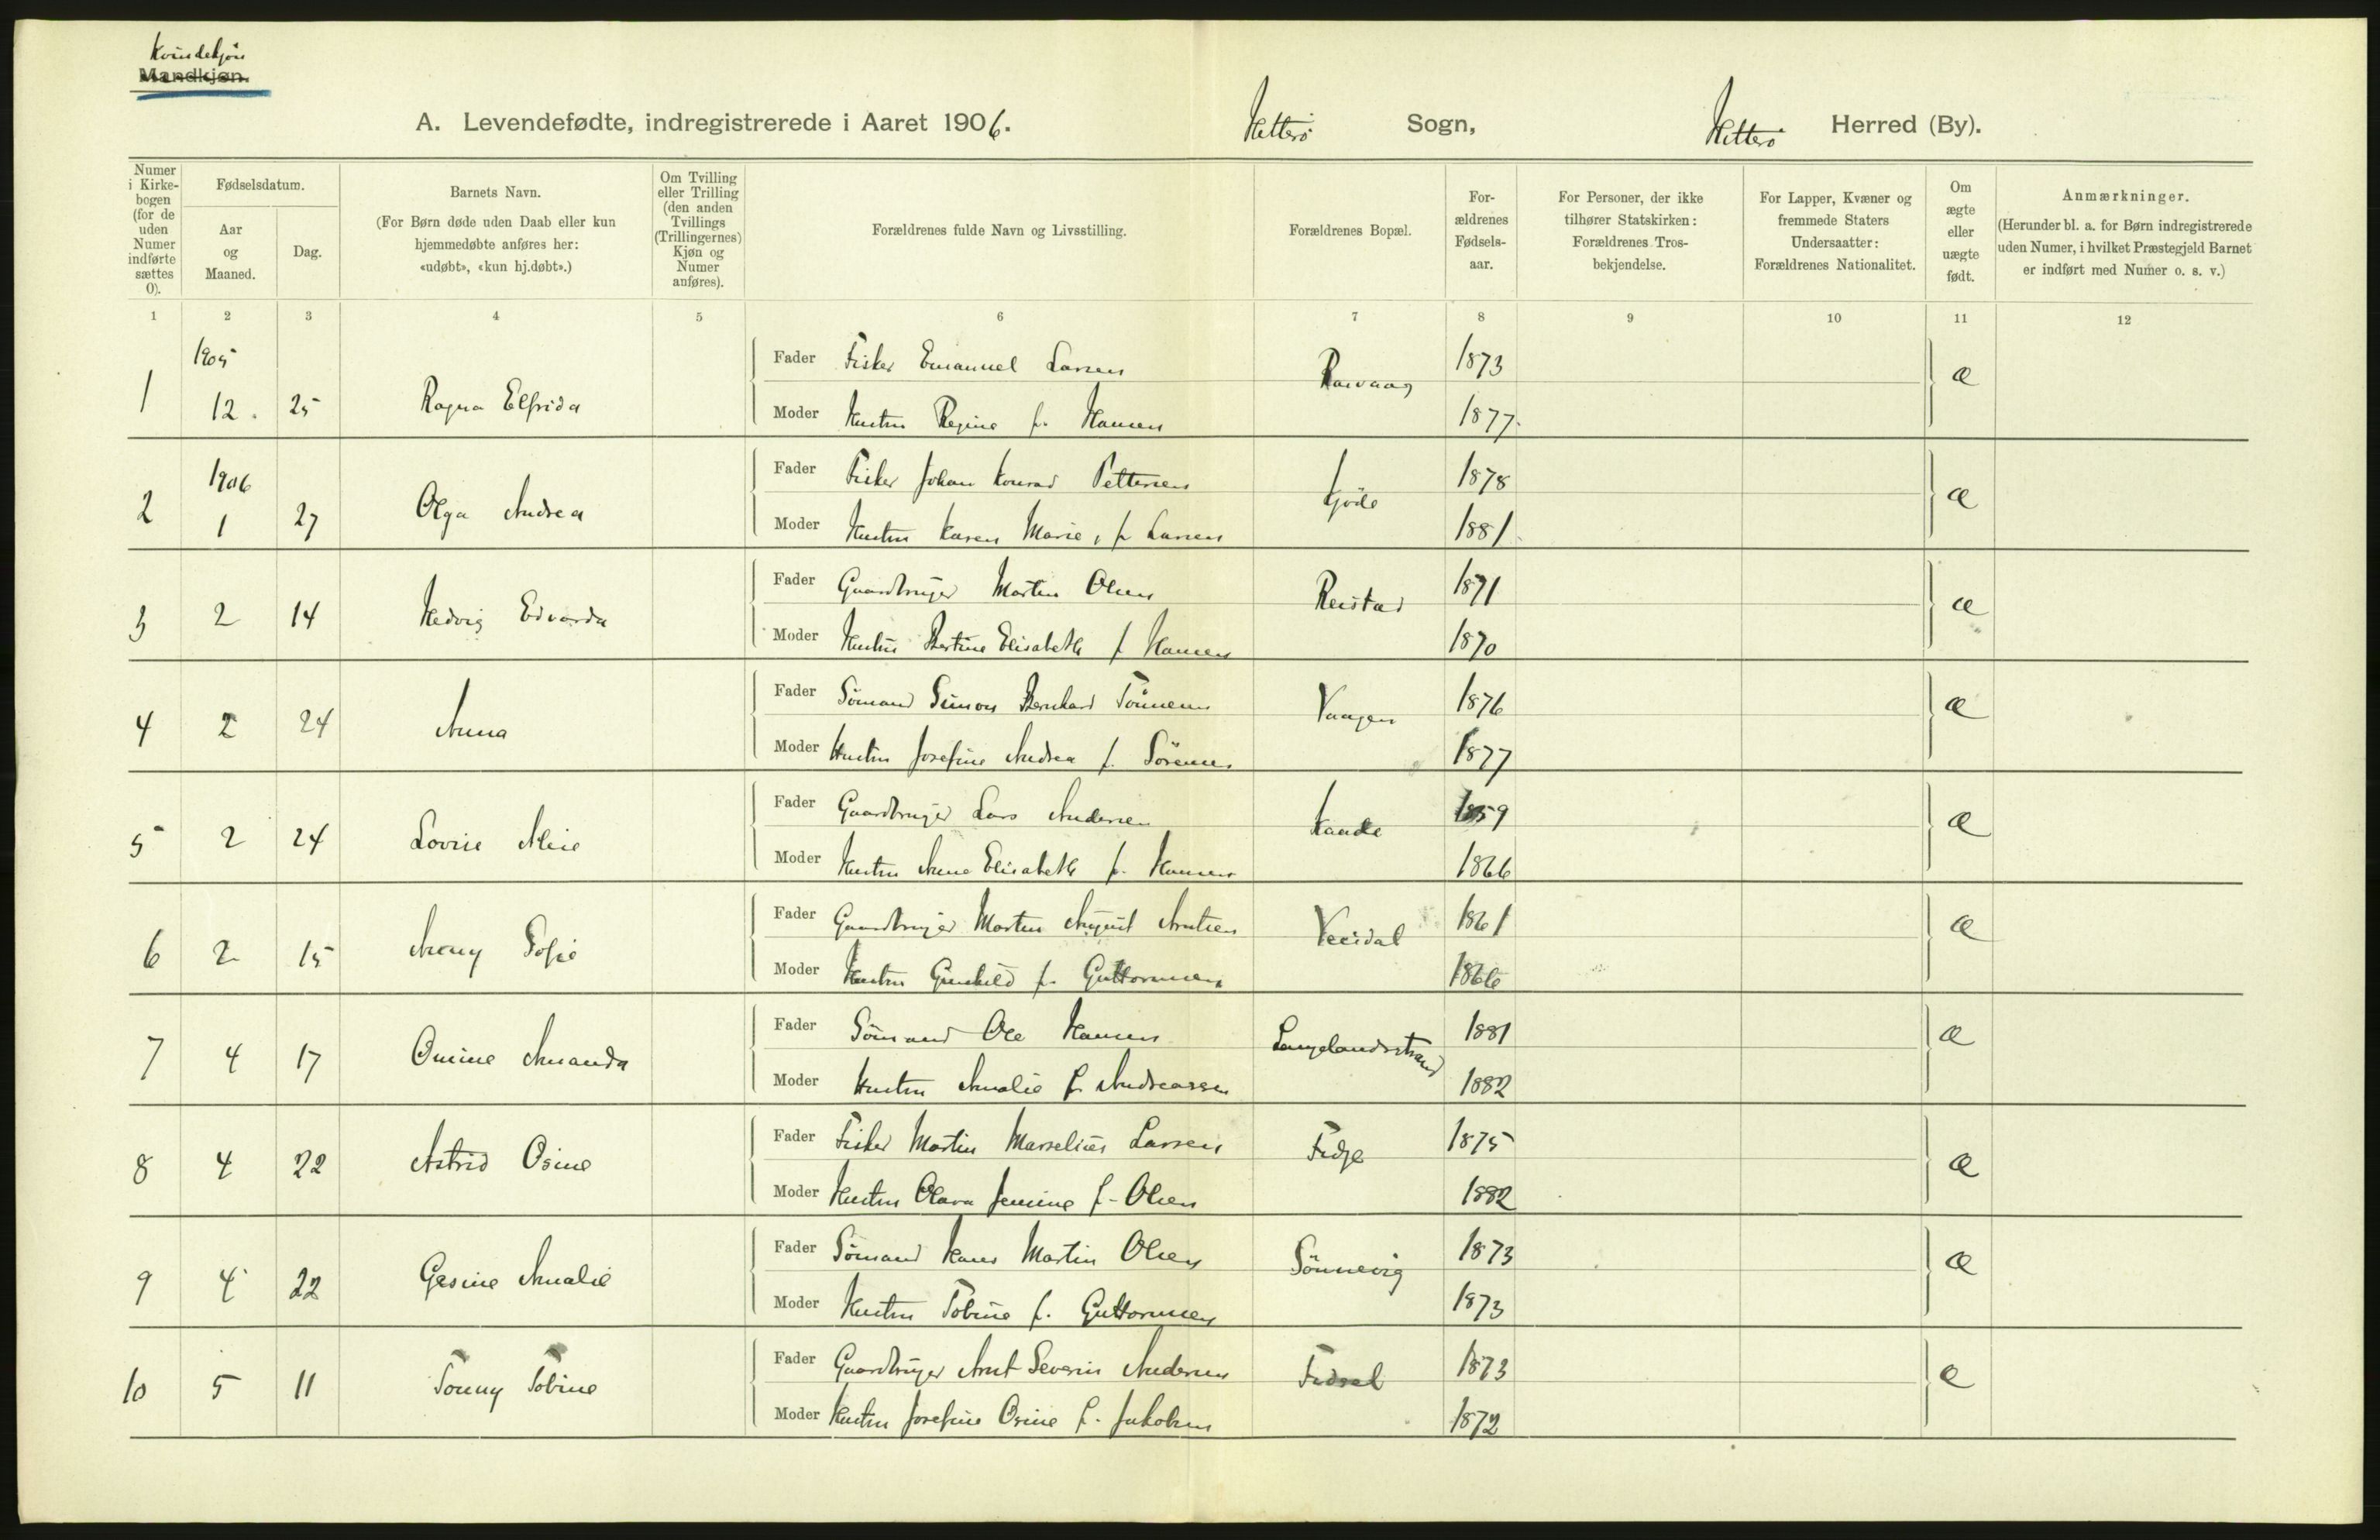 Kvindekjøn
Mandkjøn.
A. Levendefødte, indregistrerede i Aaret 1906. Hitterö Sogn, Hitterö Herred (By).
Numer i Kirkebogen (for de uden Numer indførte sættes 0).
Fødselsdatum.
Aar og Maaned.
Dag.
Barnets Navn.
(For Børn døde uden Daab eller kun hjemmedøbte anføres her: «udøbt», «kun hj.døbt».)
Om Tvilling eller Trilling (den anden Tvillings (Trillingernes) Kjøn og Numer anføres).
Forældrenes fulde Navn og Livsstilling.
Forældrenes Bopæl.
Forældrenes Fødselsaar.
For Personer, der ikke tilhører Statskirken: Forældrenes Trosbekjendelse.
For Lapper, Kvæner og fremmede Staters Undersaatter: Forældrenes Nationalitet.
Om ægte eller uægte født.
Anmærkninger.
(Herunder bl. a. for Børn indregistrerede uden Numer, i hvilket Præstegjeld Barnet er indført med Numer o. s. v.)
1 2 3 4 5 6 7 8 9 10 11 12
1905
Fader Fisker Emanuel Larsen Rasvaag 1873 æ
1 12. 25 Ragna Elfrida
Moder Hustru Regine f. Hansen 1877.
1906
Fader Fisker Johan Konrad Pettersen 1878 æ
2 1 27 Olga Andrea
Moder Hustru Karen Marie, f. Larsen 1881.
Fader Gaardbruger Martin Olsen Reistad 1871 æ
3 2 14 Hedvig Edvarda
Moder Hustru Bertine Elisabeth f Hansen 1870
Fader Sömand Simon Bernhard Tönnesen Vaagen 1876 æ
4 2 24 Anna
Moder Hustru Josefine Andrea f. Sörensen 1877
Fader Gaardbruger Lars Andersen 1859 æ
5 2 24 Lovise
Moder Hustru Anne Elisabeth f. Hansen 1866
Fader Gaardbruger Martin August Arntsen 1861 æ
6 2 15 Sofie
Moder Hustru Gunhild f. Guttormsen 1866
Fader Sömand Ole Hansen Langelandsstrand 1881 æ
7 4 17 Amanda
Moder Hustru Amalie f. Andreassen 1882
Fader Fisker Martin Marselius Larsen Fidje 1875 æ
8 4 22 Astrid Osine
Moder Hustru Olava Jensine f. Olsen 1882
Fader Sömand Hans Martin Olsen Sönnevig 1873 æ
9 4 22 Gesine Amalie
Moder Hustru Tobine f. Guttormsen 1873
Fader Gaardbruger Arnt Severin Andersen Fidsel 1873 æ
10 5 11 Tonny Tobine
Moder Hustru Josefine Osine f. Jakobsen 1872